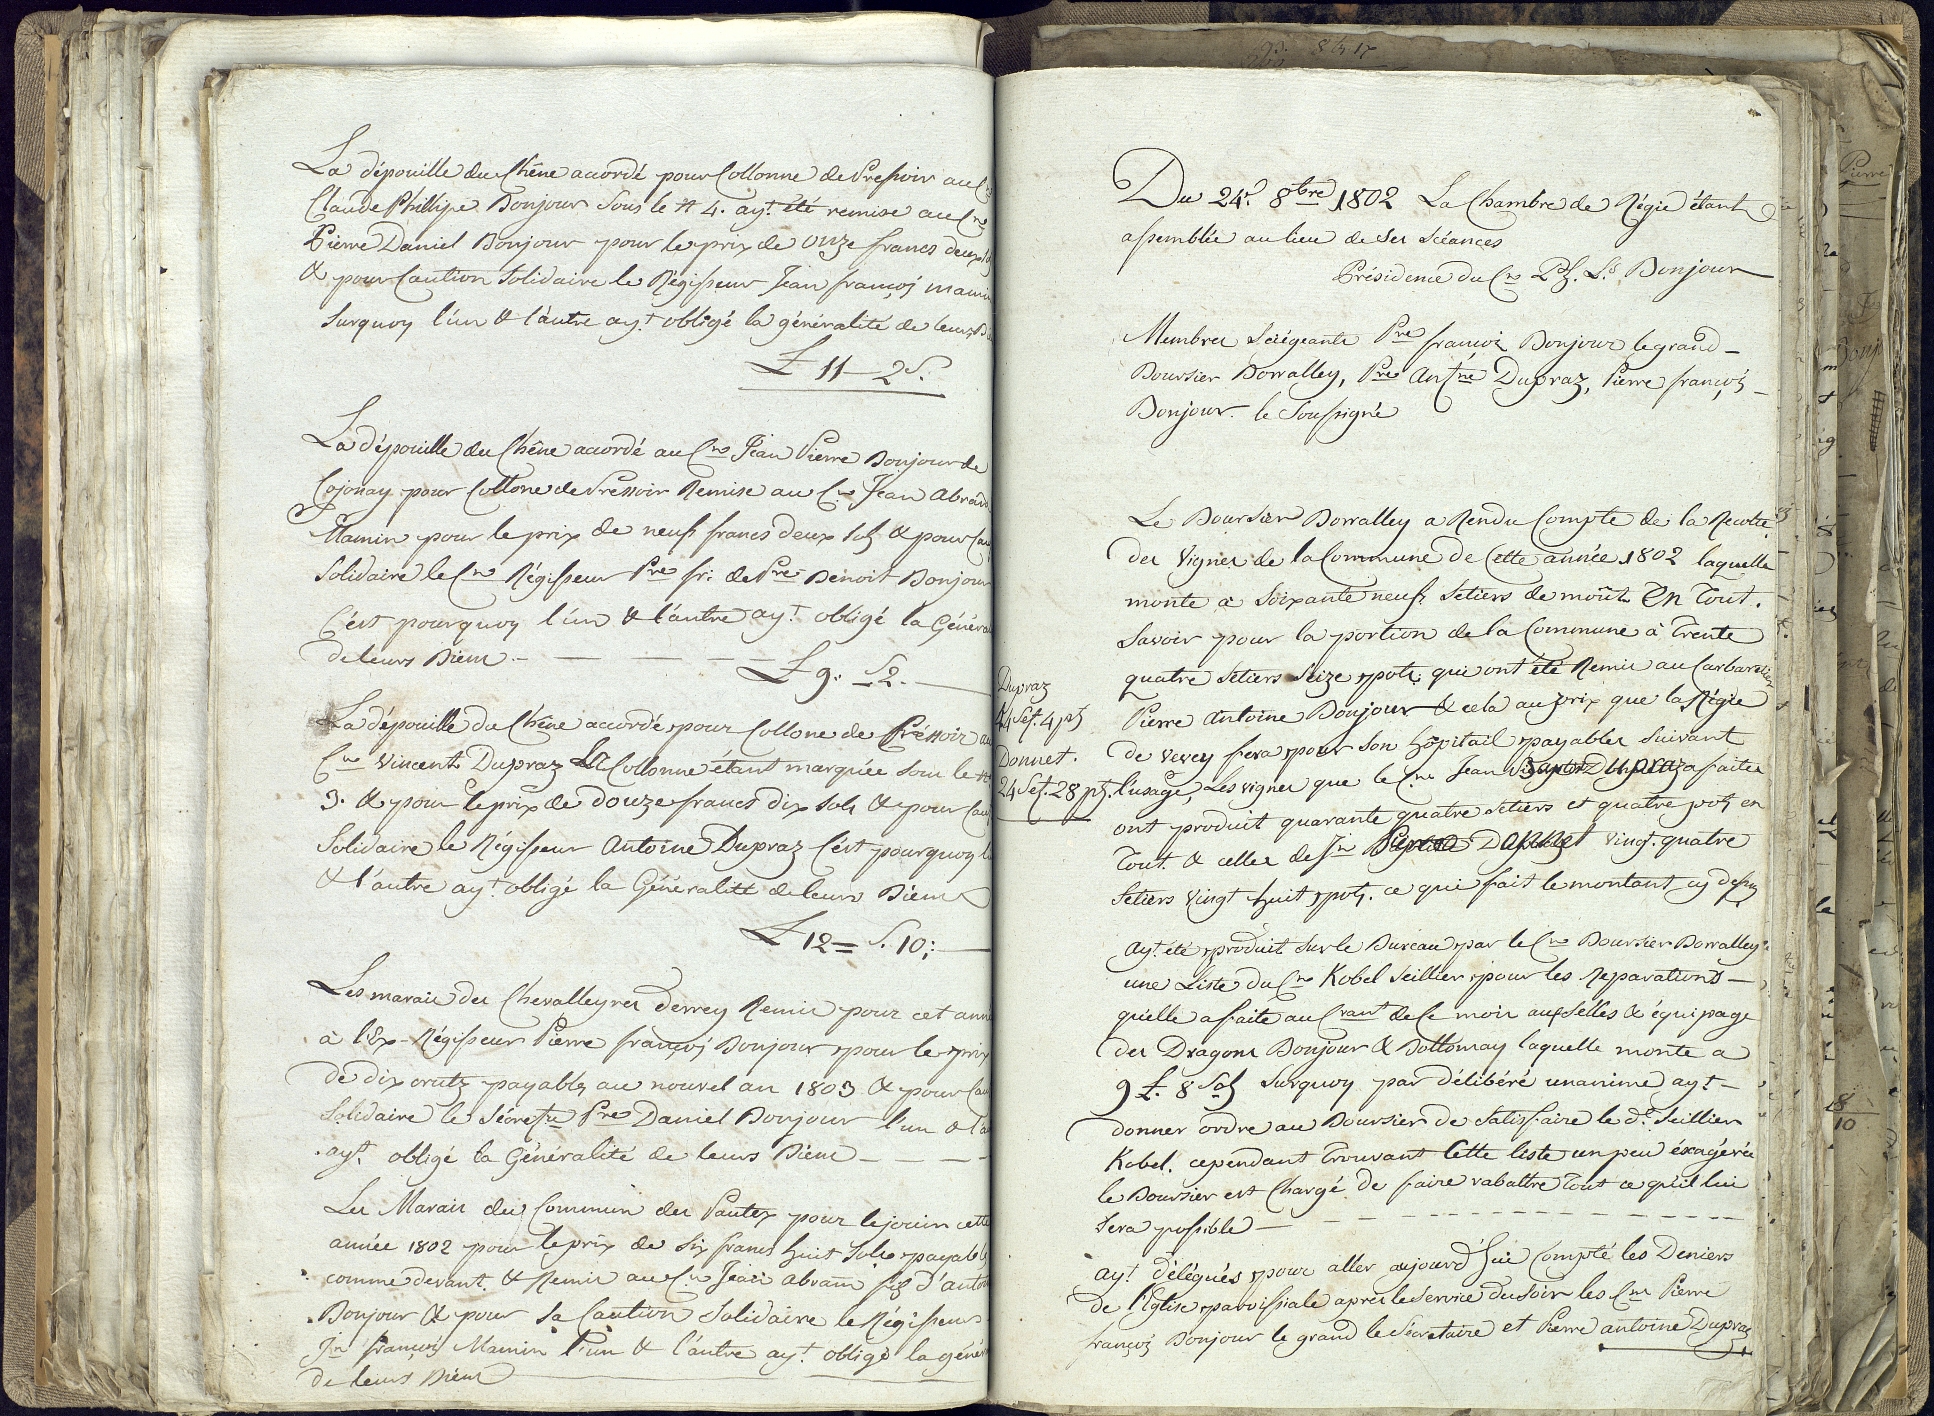 La dépouille du Chêne acordé pour Collonne de Pressoir au
Claude Phillipe Bonjour sous le # 4. ayt. été remise au Cne
Pierre Daniel Bonjour pour le prix de onze francs deux
& pour Caution Solidaire le Régisseur Jean françoi mamin
Surquoy l'un & l'autre ayt. obligé la généralité de leurs
£ 11 – 2 S.
La dépouille du Chêne acordé au Cne Jean Pierre Bonjour de
Cojonay pour Collone de Pressoir Remise au Cne Jean Abram
Mamin pour le prix de neuf francs deux sols & pour
Solidaire le Cne Régisseur Pre fr: de Pre Benoit Bonjour
C'est pourquoy l'un & l'autre ayt. obligé la Généra
de leurs Biens – – – – £ 9. S 2. –
La dépouille du Chêne accordé pour Collone de Pressoir au
Cne Vincent Dupraz La Collonne étant marquée sous le #
3. & pour le prix de douze francs dix sols & pour Cau
Solidaire le Régisseur Antoine Dupraz C'est pourquoy
& l'autre ayt. obligé la Généralité de leurs Biens
£ 12 = S. 10: –
Les marais des Chevalleyres derrey Remis pour cet anné
à l'Ex-Régisseur Pierre françoi Bonjour pour le prix
de dix crutz payables au nouvel an 1803 & pour Cau
Solidaire le Sécretre Pre Daniel Bonjour l'un &
ayt. obligé la Généralité de leurs Biens – – –
Les Marais du Commun des Pautex pour le jouir cette
année 1802 pour le prix de six francs huit Sols payable
comme devant. & Remis au Cne Jean Abram fils d'antoi
Bonjour & pour sa Caution Solidaire le Régisseur
Jn françoi Mamin l'un & l'autre ayt. obligé la géné
de leurs Biens
Du 24e. 8bre 1802 La Chambre de Régie étant
assemblée au lieu de ses Séances
Présidence du Cne Ph. Ls. Bonjour
Membres Siégeants Pre françoi Bonjour le grand –
Boursier Borralley, Pre Antne Dupraz, Pierre françoi –
Bonjour. le Soussigné
Le Boursier Borralley a Rendu Compte de la Recolte
des Vignes de la Commune de Cette année 1802 laquelle
monte à Soixante neuf Setiers de moût En Tout.
Savoir pour la portion de la Commune à Trente
quatre Setiers Seize pots qui ont été Remis au Cabaretier
Pierre Antoine Bonjour & cela au prix que la Régie
de Vevey fera pour son hôpitail payables suivant
l'usage, Les vignes que le Cne Jean Dupraz a faites
ont produit quarante quatre Setiers et quatre pots en
Tout. & celles de Jn Donnet vingt quatre
Setiers Vingt huit pots. ce qui fait le montant cy dessus
Dupraz
44 Set. 4 pts
Donnet.
24 Set. 28 pts.
Ayt. été produit sur le Bureau par le Cne Boursier Borralley
une Liste du Cne Kobel Seillier pour les Reparations –
qu'elle a faite au Crant de Ce mois aux Sélles & équipage
des Dragons Bonjour & Dottomay laquelle monte a
9 £. 8 Sols Surquoy par délibéré unanime ayt –
donner ordre au Boursier de Satisfaire le dt. Seillier
Kobel. cependant Trouvant Cette liste un peu éxagérée
le Boursier est Chargé de faire rabattre Tout ce qu'il lui
sera possible –
ayt. délégués pour aller aujourd'hui compté les Deniers
de l'Eglise parroissiale après le Service du Soir les Cns Pierre
françoi Bonjour le grand le Sécretaire et Pierre antoine Dupraz